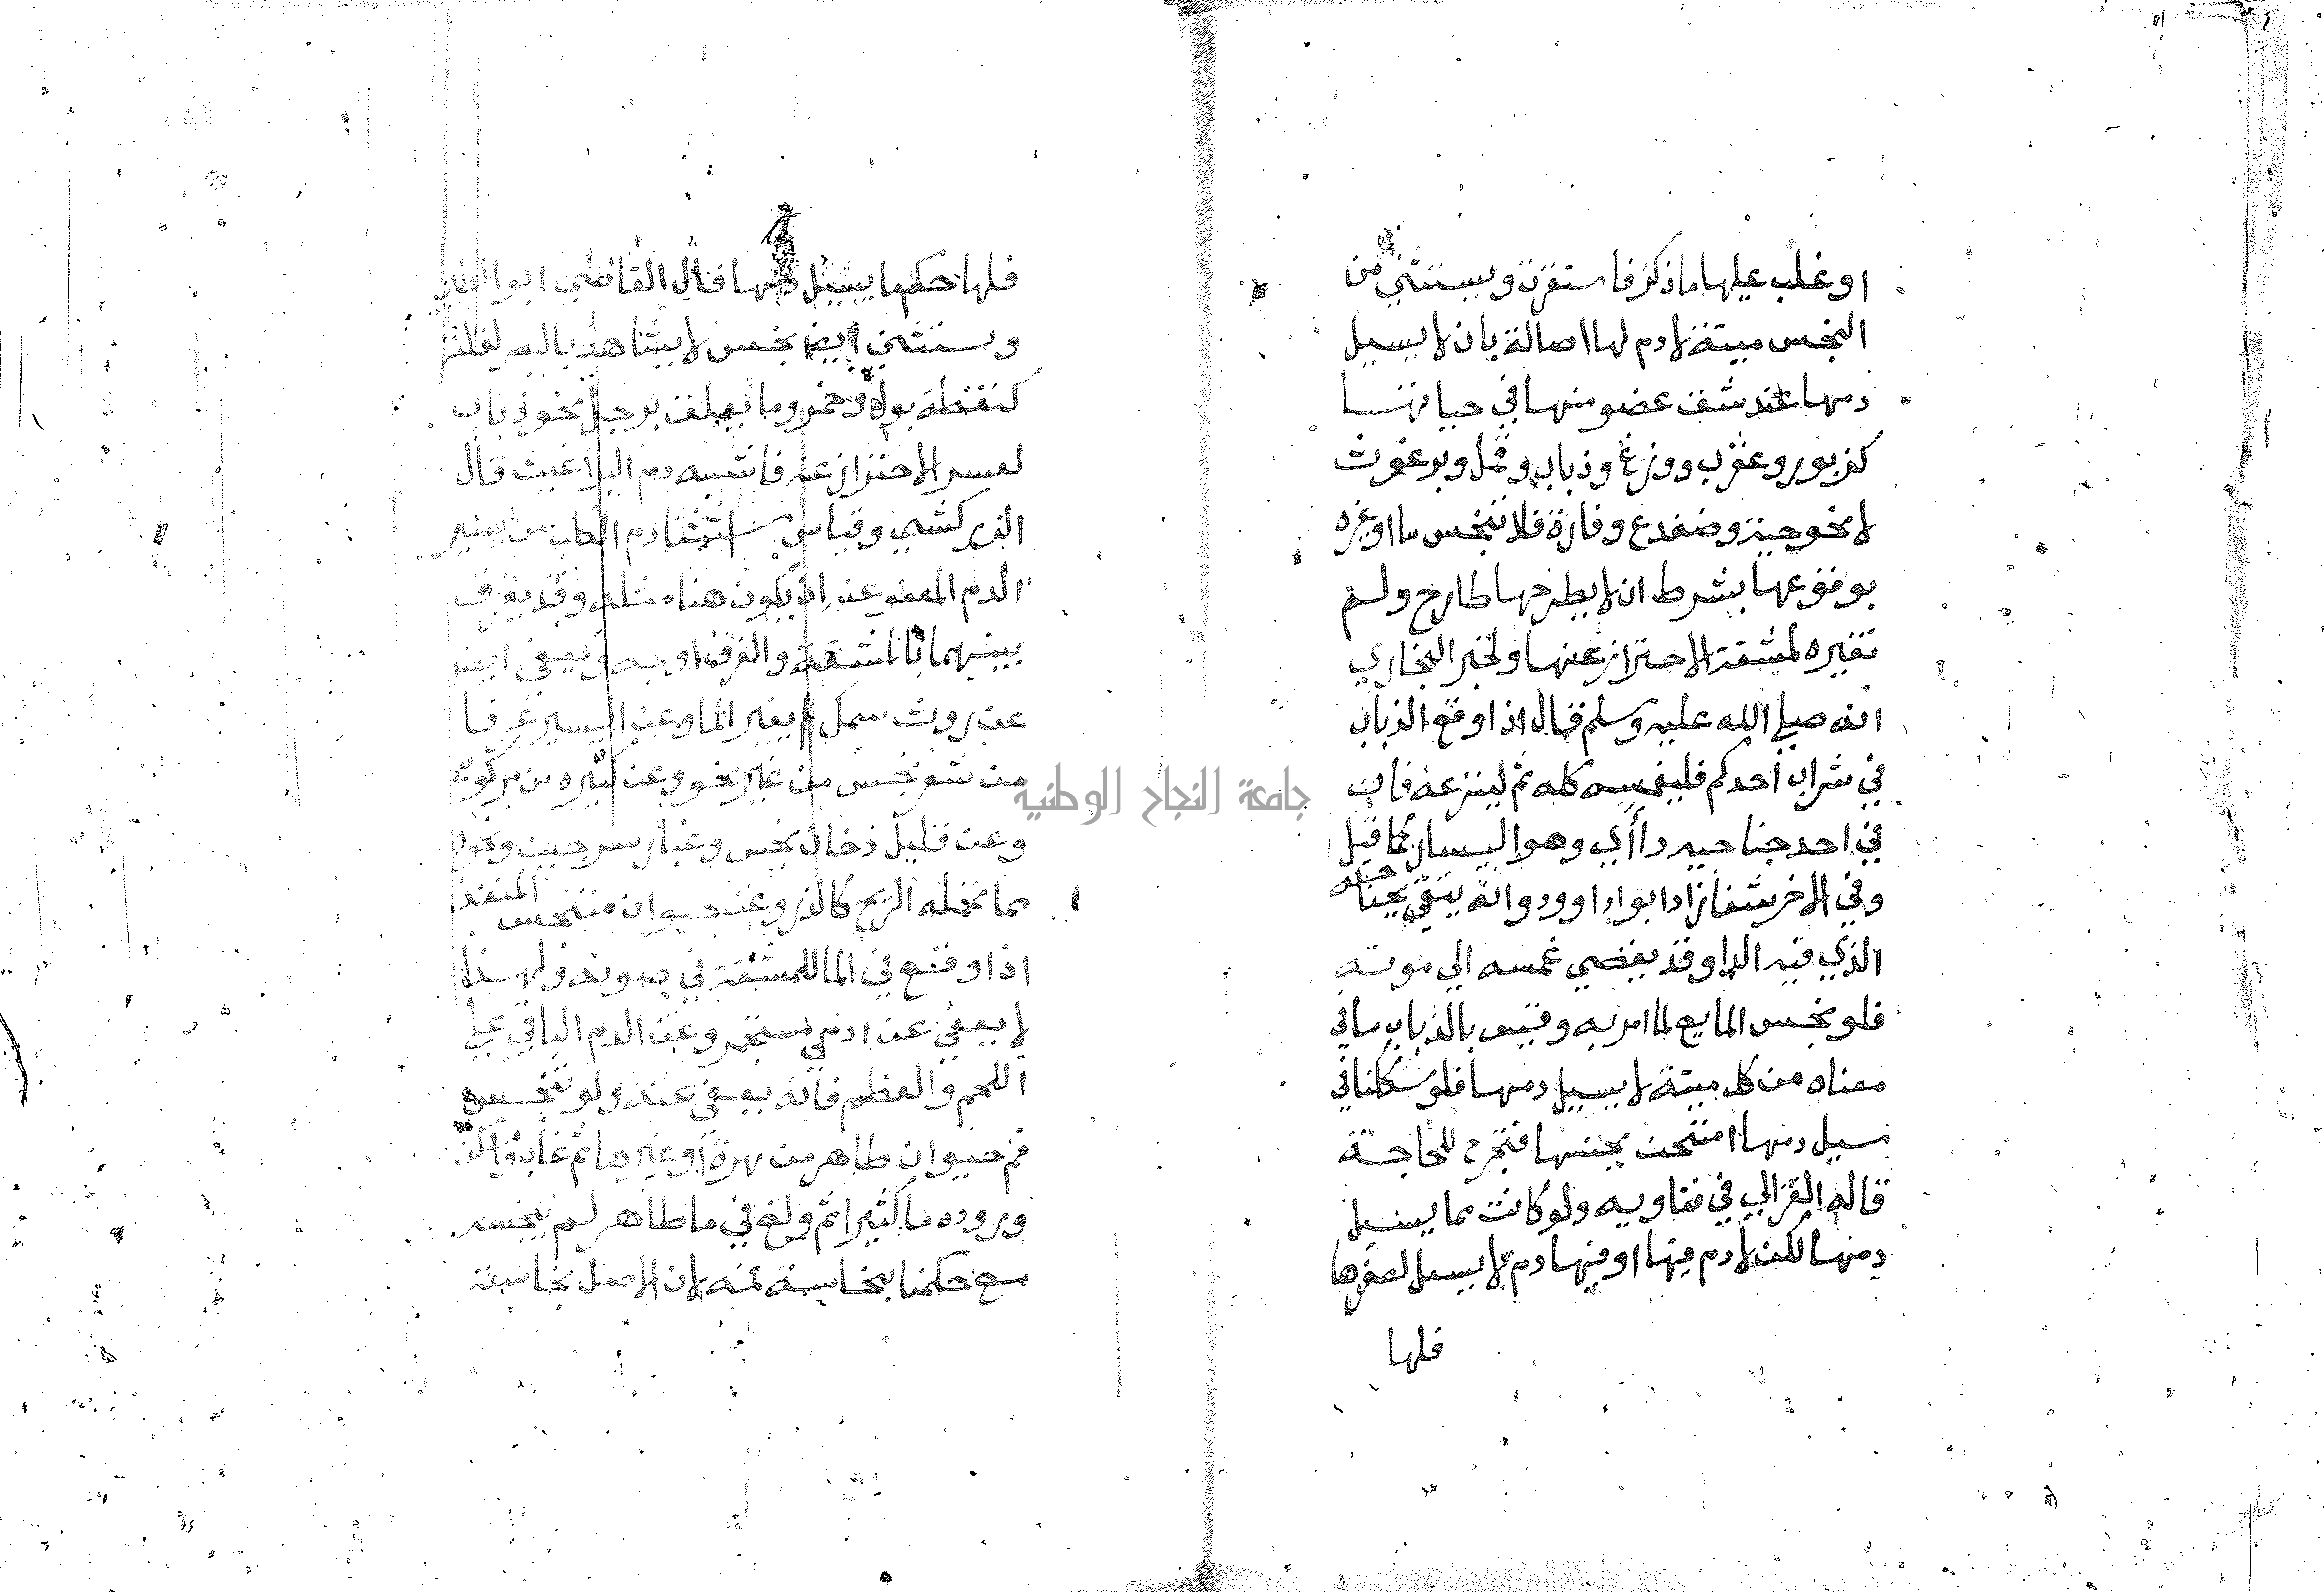 او غلب عليها ما ذكر فاستقرت ويستثني من
النجس ميتة لا دم لها اصالة بان لا يسيل
دمها عند شق عضو منها في حياتها
كزنبور وعقرب ووزغ وذباب وقمل وبرغوث
لا نحو حية وضفدع وفارة فلا تنجس ما او غيره
بوقوعها بشرط ان لا يطرحها طارح ولم
تغيره لمشقة الاحتراز عنها ولخبر البخاري
انه صلي الله عليه وسلم قال اذا وقع الذباب
في شراب احدكم فليغمسه كله ثم لينزعه فان
في احد جناحيه داأي وهو اليسار كما قيل
وفي الاخر شفا زاد ابو داوود وانه يتقي بجناحه
الذي فيه الدا وقد يفضي غمسه الي موته
فلو نجس المايع لما امر به وقيس بالذباب ما في
معناه من كل ميتة لا يسيل دمها فلو شككنا في
سيل دمها امتحن بجنسها فتجرح للحاجة
قاله الغزالي في فتاويه ولو كانت مما يسيل
دمها لكن لا دم فيها او فيها دم لا يسيل لصغرها
فلها
فلها حكم ما يسيل دمها قال القاضي ابو الطيب
ويستثني ايضا نجس لا يشاهد بالبصر لقلته
كنقطة بول وخمر وما يعلق برجل نحو ذباب
لعسر الاحتراز عنه فاشبه دم البراغيث قال
الزركشي وقياس استثنا دم الكلب من يسير
الدم المعفو عنه ان يكون هنا مثله وقد يفرق
بينهما بالمشقة والفرق اوجه ويعفي ايضا
عن روث سمك لم يغير الما وعن اليسير عرفا
من شعر نجس من غير نحو وعن كثيره من مركوب
وعن قليل دخان نجس وغبار سرجين ونحوه
مما تحمله الريح كالذر وعن حيوان متنجس المنفذ
اذا وقع في الما للمشقة في صونه ولهذا
لا يعفي عن ادمي مستجمر وعن الدم الباقي علي
اللحم والعظم فانه يعفي عنه ولو تنجس
فم حيوان طاهر من هرة او غيرها ثم غاب وامكن
وروده ما كثيرا ثم ولغ في ما طاهر لم ينجسه
مع حكمنا بنجاسة فمه لان الاصل نجاسته
جامعة النجاح الوطنية